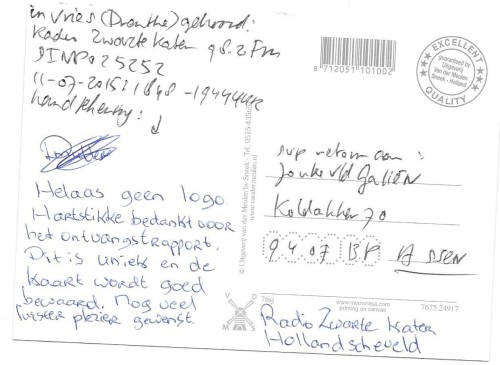 in Vries (Drenthe) gehoord:
Radio Zwarte Kater 98.2 Fm
SINPO 25252
11-07-2015
Helaas geen logo.
Hartstikke bedankt voor
het ontvangstrapport.
Dit is uniek en de
kaart wordt goed
bewaard. Nog veel
luister plezier gewenst.
8 712051 101002
EXCELLENT
guaranteed by
Uitgeverij
Van der Meulen
Sneek - Holland
QUALITY
© Uitgeverij Van der Meulen bv Sneek - Tel. 0515
svp retour aan:
Jonker vld Galiën
Koldakker 70
9407 BP ASSEN
www.myowntea.com
printing on canvas
7675.24917
Radio Zwarte Kater
Hollandscheveld